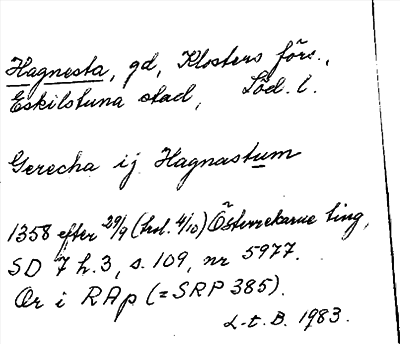 Hagnesta, gd, Klosters förs.,
Eskilstuna stad, Söd. l.
Gerecha ij Hagnastum
1358 efter 29/9 (trol. 4/10) Österrekarne ting,
SD 7 h.3, s. 109, nr 5977.
Or i RAp (=SRP 385).
L-t. B. 1983.